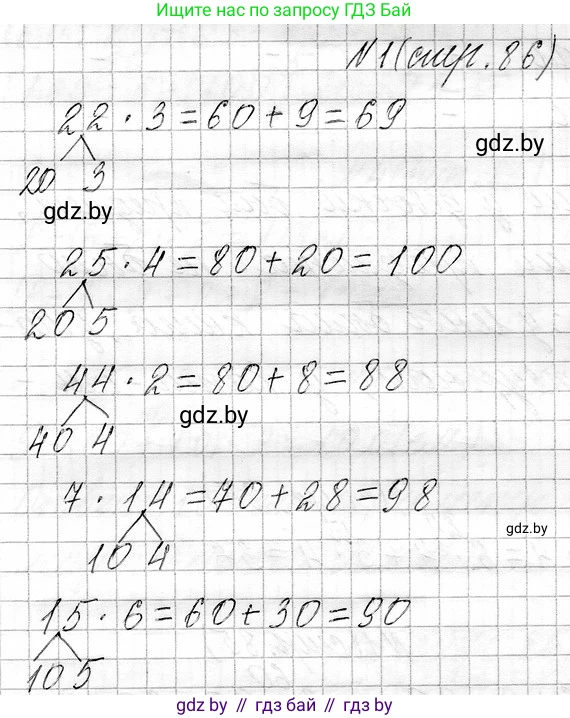 Ищите нас по запросу ГДЗ Бай
N1 (стр. 86)
22 · 3 = 60 + 9 = 69
gdz.by
20 3
gdz.by
25 · 4 = 80 + 20 = 100
20 5
44 · 2 = 80 + 8 = 88
gdz.by
40 4
7 · 14 = 70 + 28 = 98
gdz.by
10 4
15 · 6 = 60 + 30 = 90
10 5
gdz.by // гдз бай // гдз by